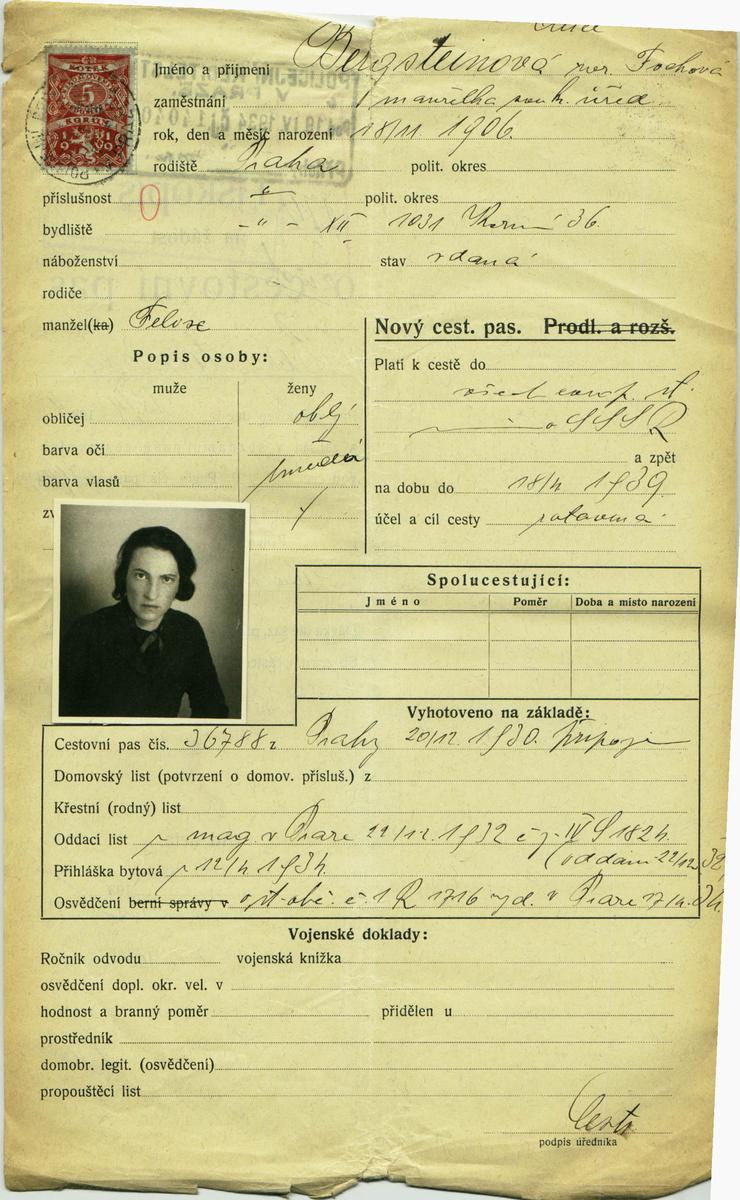 Jméno a příjmení Bergsteinová roz. Fochová
zaměstnání manželka soukr. úřed.
rok, den a měsíc narození 18/11 1906.
rodiště Praha polit. okres
příslušnost " polit. okres
0
bydliště - " - XII 1031 36.
náboženství stav vdaná
rodiče
manžel(ka)
Popis osoby:
muže ženy
obličej oblý
barva očí
barva vlasů hnědá
Nový cest. pas. Prodl. a rozš.
Platí k cestě do
všech evrop. st.
SSSR
a zpět
na dobu do 18/4 1939
účel a cíl cesty
Spolucestující:
Jméno Poměr Doba a místo narození
Vyhotoveno na základě:
Cestovní pas čís. 36788 z Prahy 20/12. 1930.
Domovský list (potvrzení o domov. přísluš.) z
Křestní (rodný) list
Oddací list mag. v Praze 22/12. 1932 č j. IV S 1824.
(oddáni 22/12 32)
Přihláška bytová 12/4 1934.
Osvědčení berní správy v č. 1 R 1716 vyd. v Praze 17/4. 34.
Vojenské doklady:
Ročník odvodu vojenská knížka
osvědčení dopl. okr. vel. v
hodnost a branný poměr přidělen u
prostředník
domobr. legit. (osvědčení)
propouštěcí list
podpis úředníka